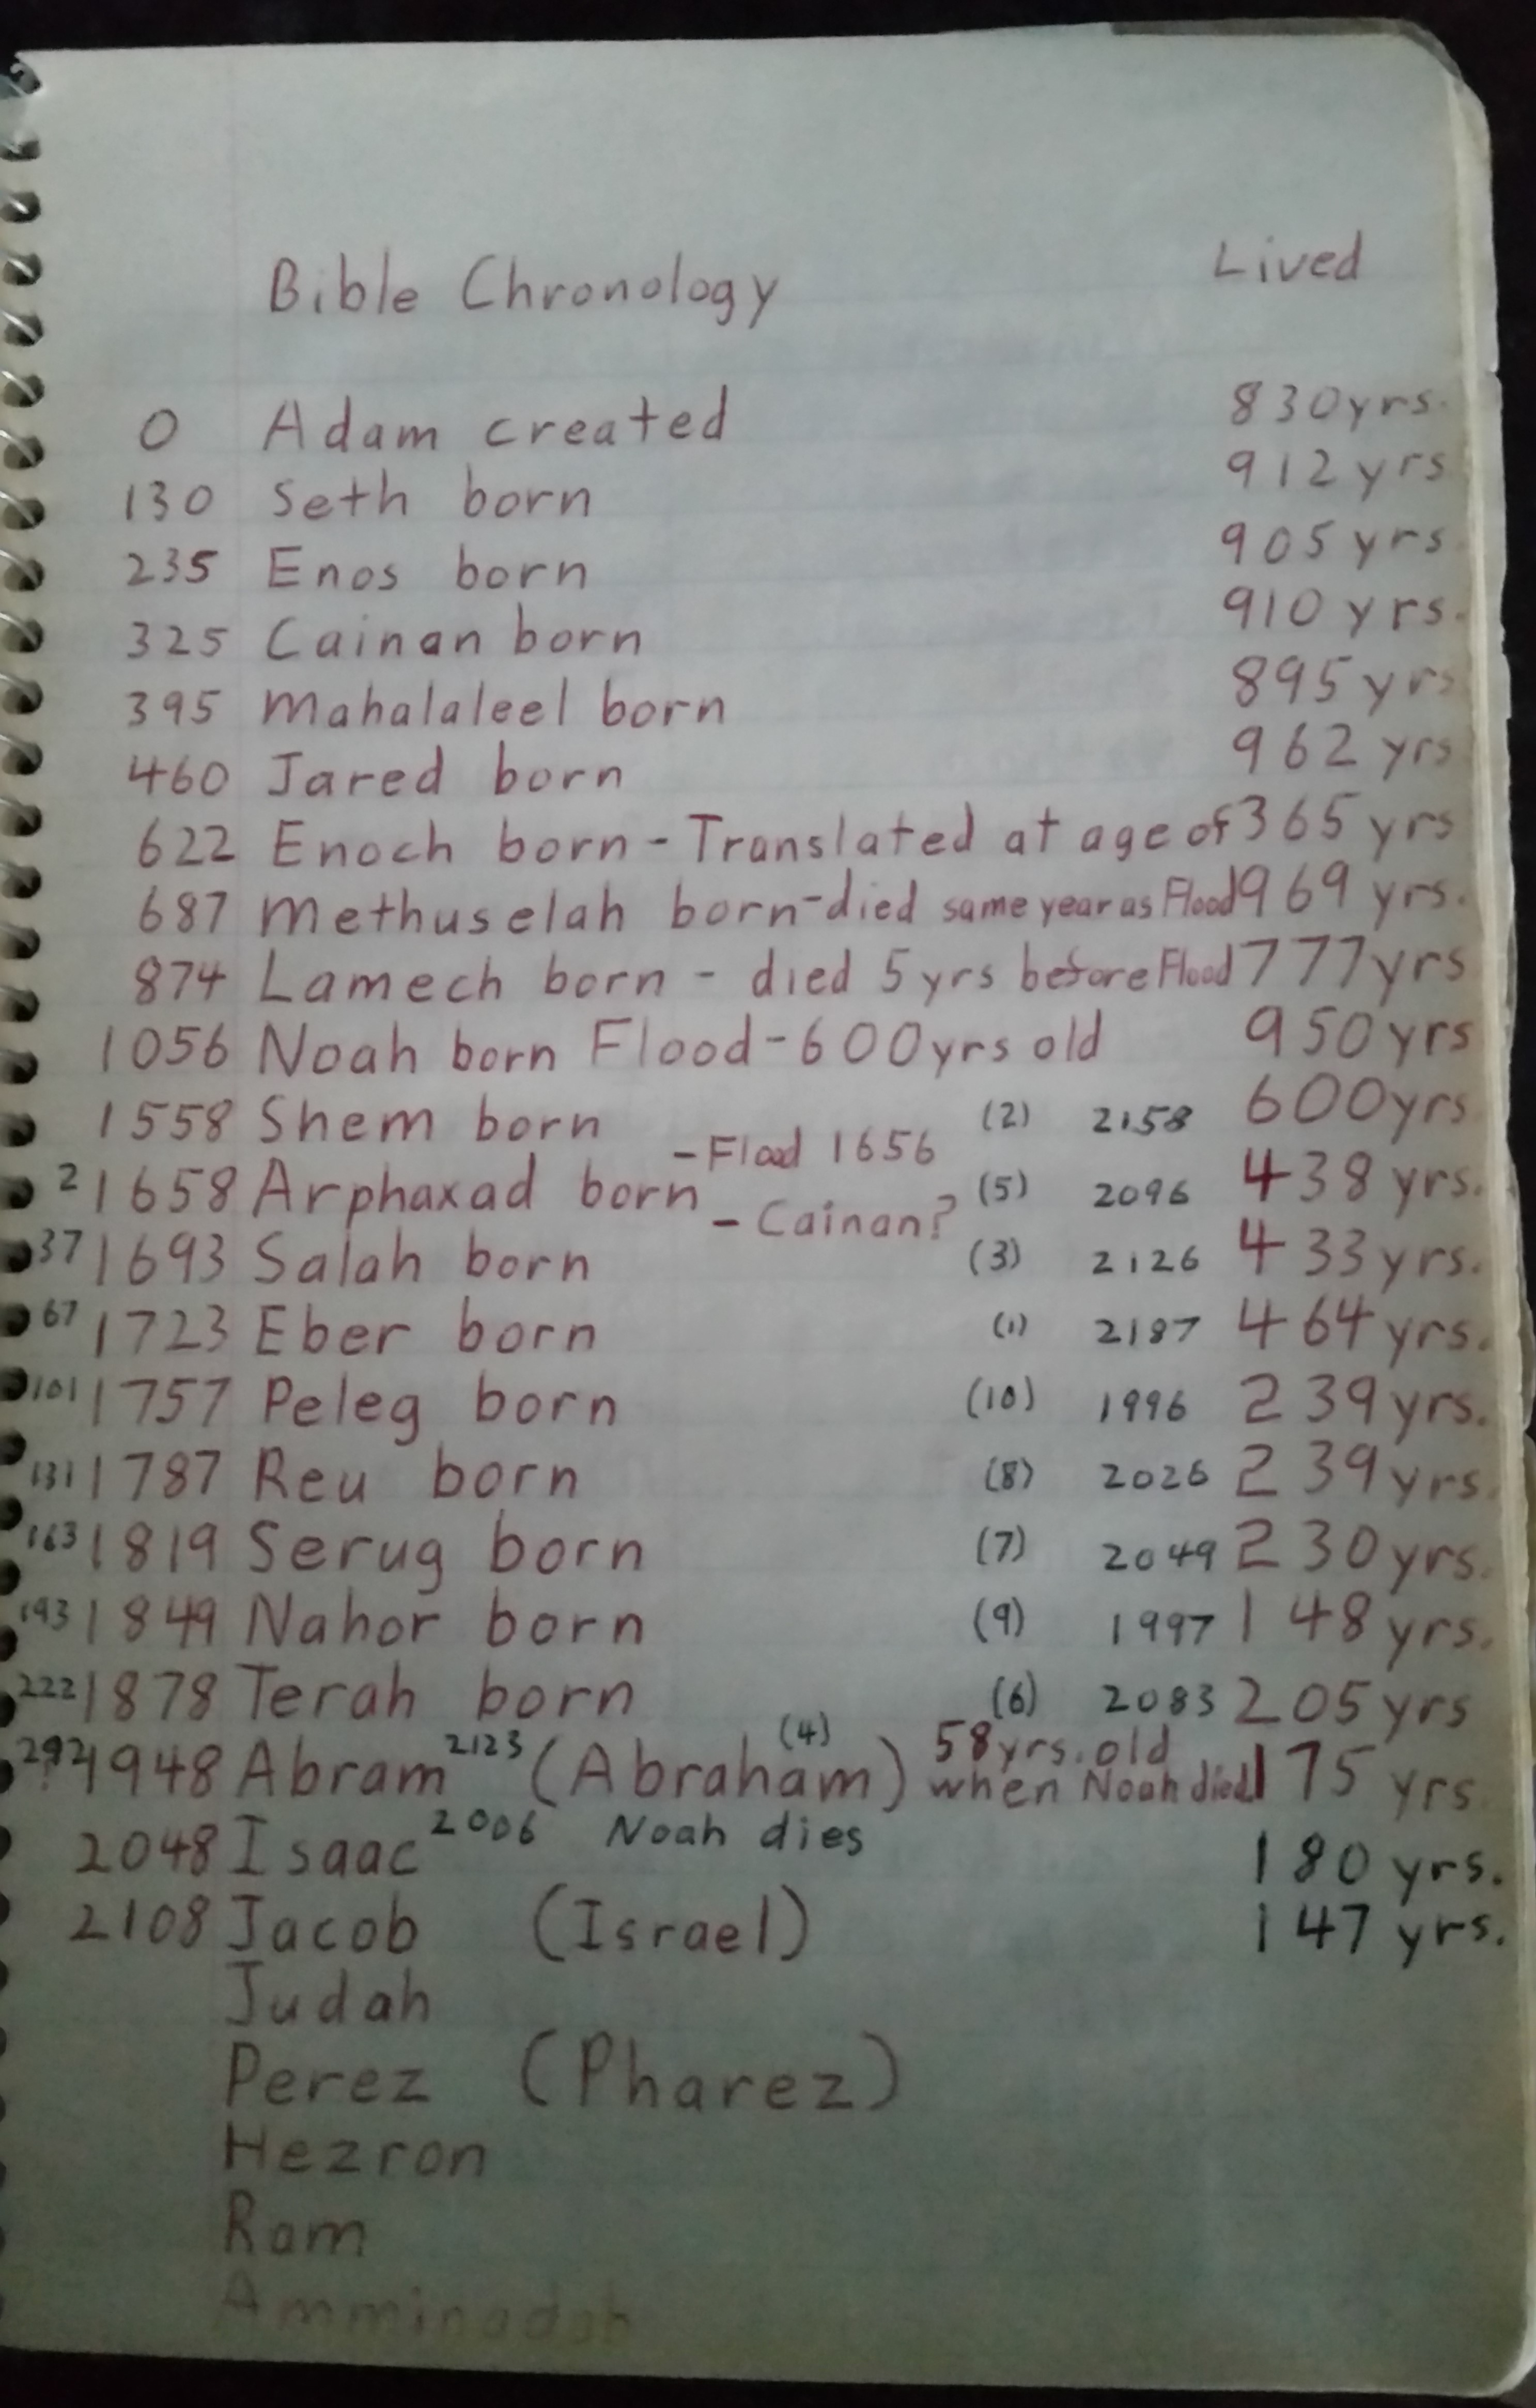 Bible Chronology Lived
0 Adam created 830yrs.
130 Seth born 912yrs
235 Enos born 905yrs
325 Cainan born 910yrs.
395 Mahalaleel born 895yrs
460 Jared born 962yrs
622 Enoch born - Translated at age of 365yrs
687 Methuselah born - died same year as Flood 969 yrs.
874 Lamech born - died 5 yrs before Flood 777yrs
1056 Noah born Flood - 600yrs old 950yrs
1558 Shem born (2) 2158 600yrs
- Flood 1656
2 1658 Arphaxad born (5) 2096 438yrs.
- Cainan?
37 1693 Salah born (3) 2126 433yrs.
67 1723 Eber born (1) 2187 464yrs.
101 1757 Peleg born (10) 1996 239yrs.
131 1787 Reu born (8) 2026 239yrs.
163 1819 Serug born (7) 2049 230yrs.
193 1849 Nahor born (9) 1997 148yrs.
222 1878 Terah born (6) 2083 205yrs
292 1948 Abram 2123 (Abraham) (4) 58yrs. old when Noah died 175 yrs.
2048 Isaac 2006 Noah dies 180 yrs.
2108 Jacob (Israel) 147 yrs.
Judah
Perez (Pharez)
Hezron
Ram
Amminadab